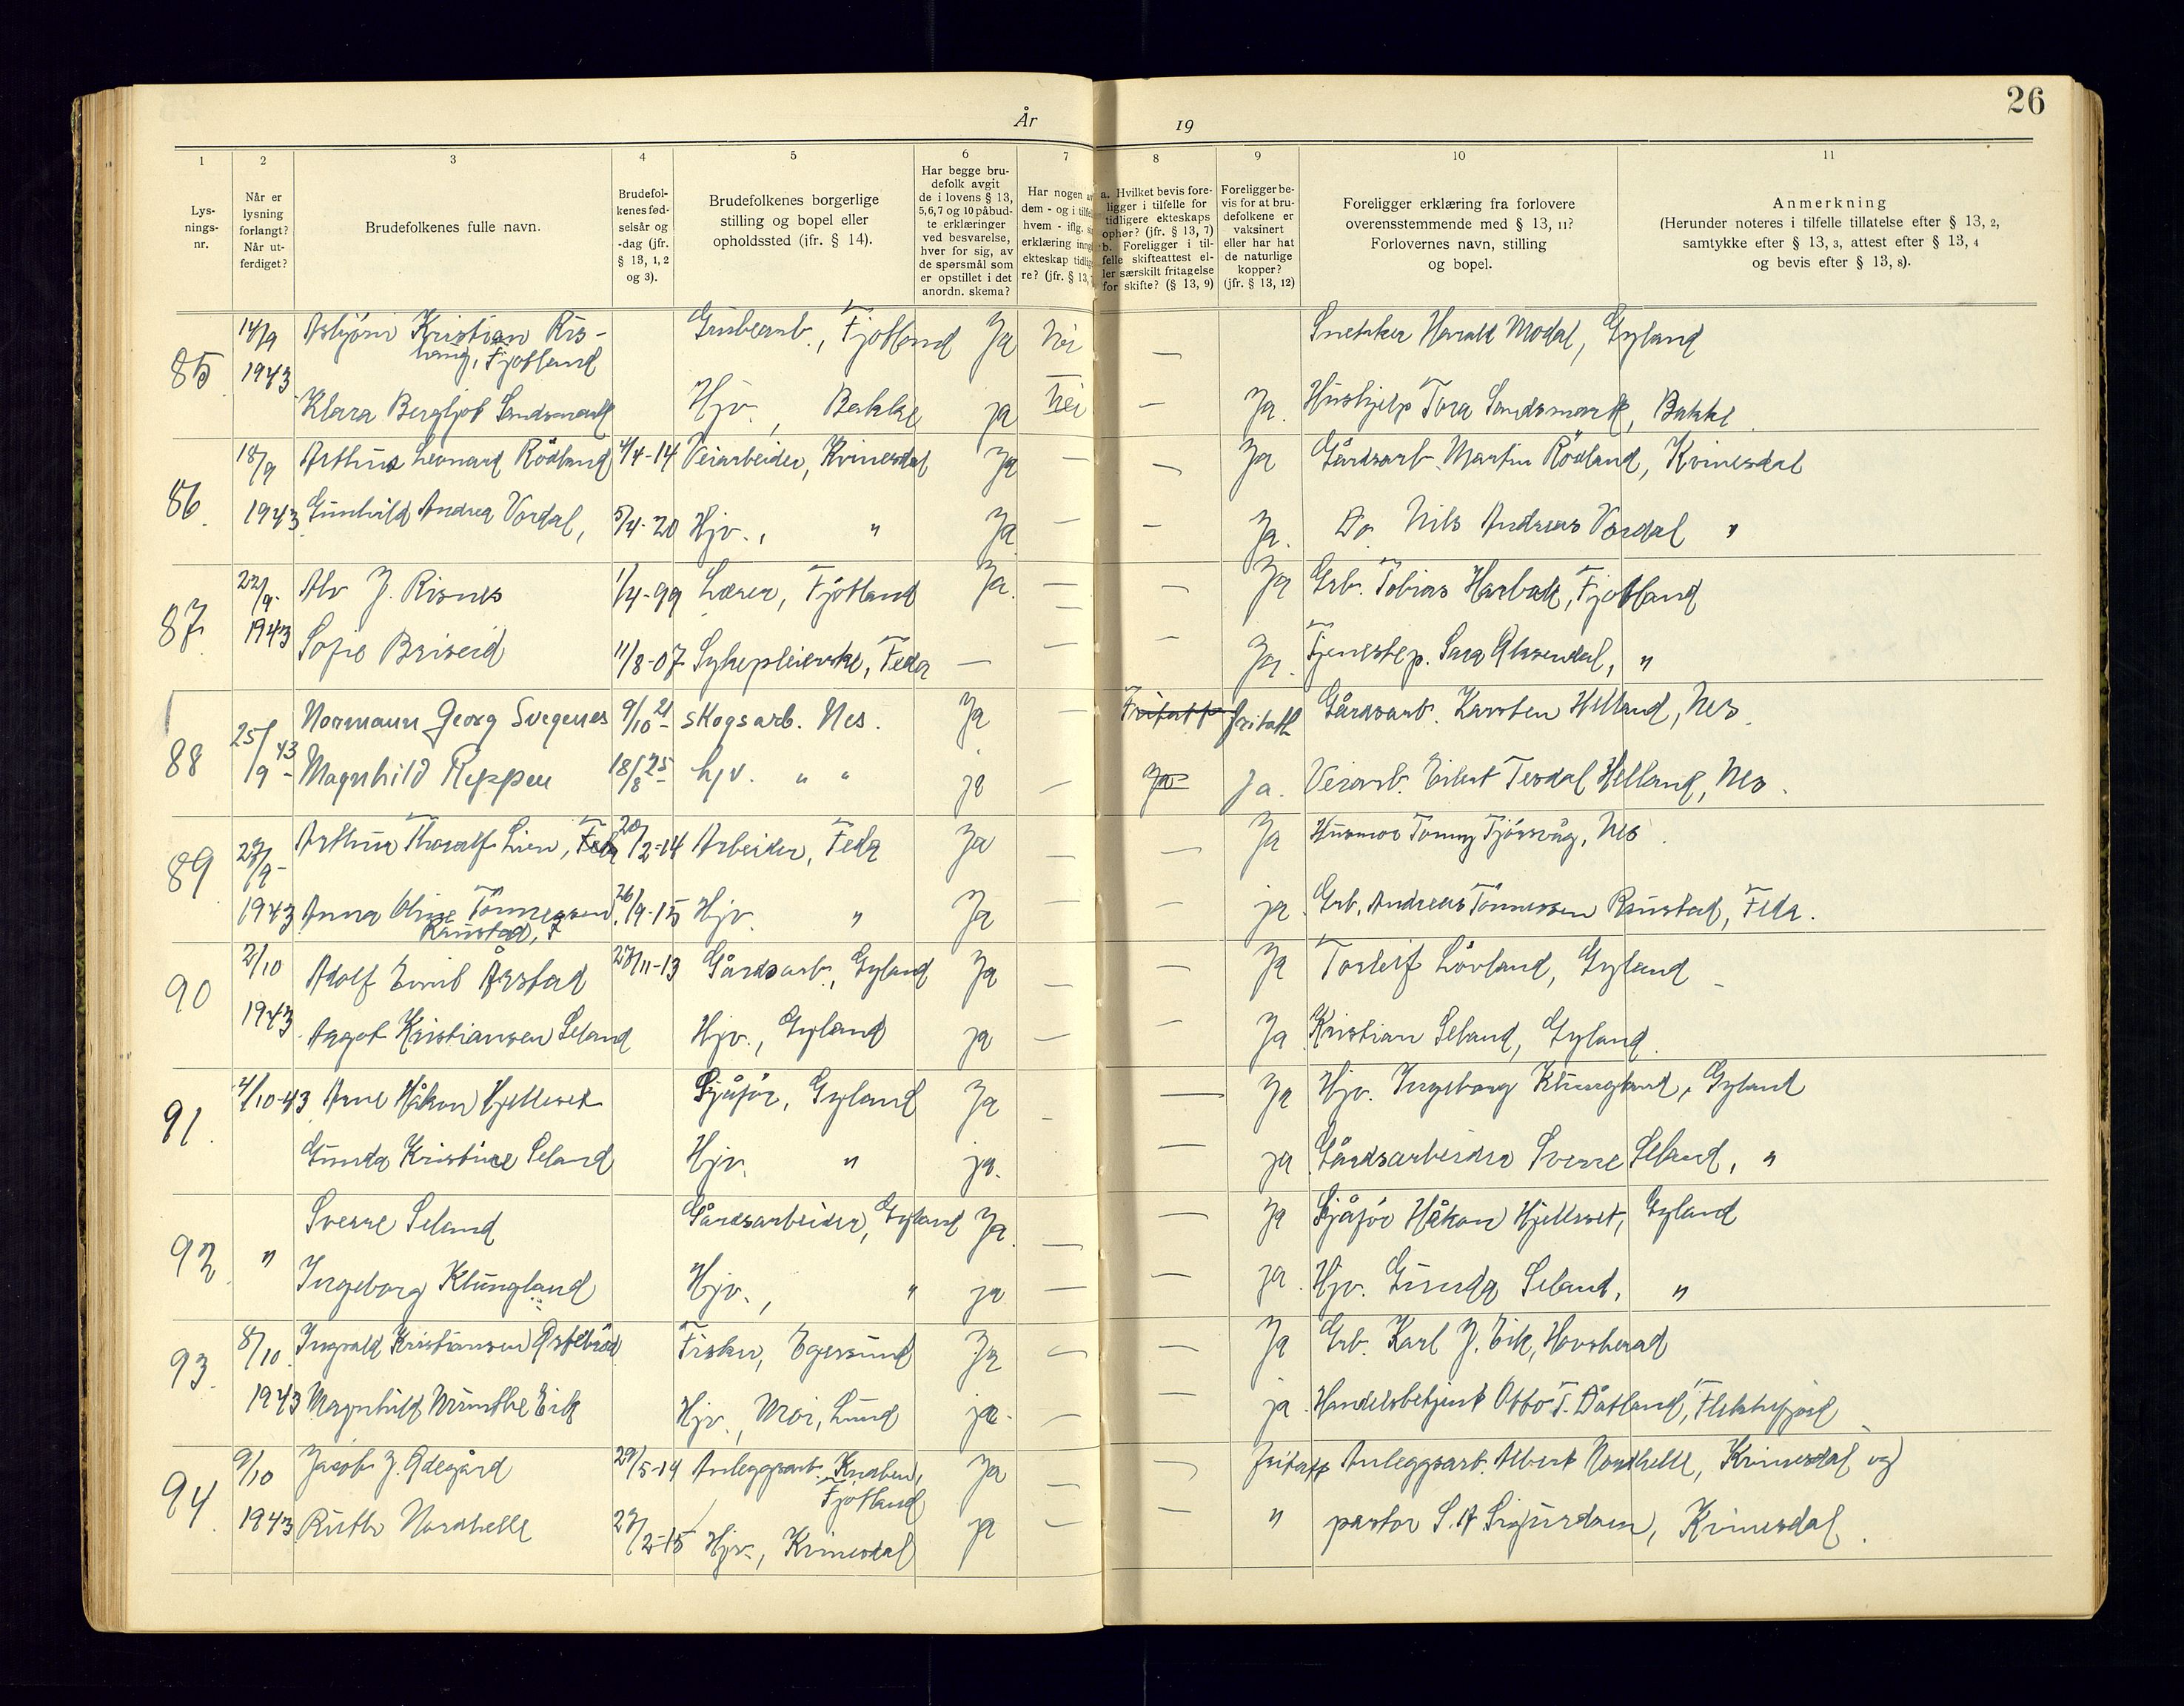 26
År 19
1 2 3 4 5 6 7 8 9 10 11
Lys-
nings-
nr.
Når er
lysning
forlangt?
Når ut-
ferdiget?
Brudefolkenes fulle navn.
Brudefol-
kenes fød-
selsår og
-dag (jfr.
§ 13, 1, 2
og 3).
Brudefolkenes borgerlige
stilling og bopel eller
opholdssted (ifr. § 14).
Har begge bru-
defolk avgit
de i lovens § 13,
5,6,7 og 10 påbud-
te erklæringer
ved besvarelse,
hver for sig, av
de spørsmål som
er opstillet i det
anordn. skema?
Har nogen
dem - og i
hvem - iflg.
erklæring
ekteskap
re? (jfr. § 13,
a. Hvilket bevis fore-
ligger i tilfelle for
tidligere ekteskaps
ophør? (jfr. § 13, 7)
b. Foreligger i til-
felle skifteattest el-
ler særskilt fritagelse
for skifte? (§ 13, 9)
Foreligger be-
vis for at bru-
defolkene er
vaksinert
eller har hat
de naturlige
kopper?
(jfr. § 13, 12)
Foreligger erklæring fra forlovere
overensstemmende med § 13, 11?
Forlovernes navn, stilling
og bopel.
Anmerkning
(Herunder noteres i tilfelle tillatelse efter § 13, 2,
samtykke efter § 13, 3, attest efter § 13, 4
og bevis efter § 13, 8).
85 14/9 Asbjörn Kristian Ris- Grubearb., Fjotland Ja nei — Snekker Harald Modal, Gyland
1943 Fjotland
Klara Bergljot Sandsmark Hjv., Bakke ja nei — Ja. Hushjelp Tora Sandsmark, Bakke
86. 18/9 Arthur Leonard Rödland 4/4-14 Veiarbeider, Kvinesdal Ja — — Ja Gårdsarb. Martin Rödland, Kvinesdal
1943 Gunhild Andrea Vordal, 5/4-20 Hjv., " Ja — — Ja. Do Nils Andreas Vordal "
87. 22/9- Alv J. Risnes 1/4-99 Lærer, Fjotland Ja. — — Ja Grb. Tobias Harbak, Fjotland
1943 Sofie Briseid 11/8-07 Sykepleierske, Feda — — — Ja. Tjenestep. Sara , "
88 25/9-43 Normann Georg Svegenes 9/10-21 skogsarb. Nes. Ja — fritatt Gårdsarb. Karsten Helland, Nes.
Magnhild Reppen 18/8-25 hjv. " " ja — ja Ja. Veiarb. Eilert Tesdal Helland, Nes.
89 27/9- Arthur Thoralf Lien, Feda 20/2-14 Arbeider, Feda Ja — — Ja Husmor Tommy Tjörsvåg, Nes.
1943 Anna Oline Tönnessen 26/9-15 Hjv. " Ja — — ja. Grb. Andreas Tönnessen Raustad, Feda.
Raustad, F
90 2/10 Adolf Emil Årstad 27/11-13 Gårdsarb., Gyland Ja — — Ja Torleif Lövland, Gyland
1943 Aagot Kristiansen Seland Hjv., Gyland ja — — Ja Kristian Seland, Gyland.
91. 4/10-43 Arne Håkon Hjelleset Sjåför, Gyland Ja — — Ja Hjv. Ingeborg Klungland, Gyland
Gunda Kristine Seland Hjv. " ja. — ja Gårdsarbeider Sverre Seland, "
92. " Sverre Seland Gårdsarbeider, Gyland Ja. — — Ja Sjåför Håkon Hjelleset, Gyland
Ingeborg Klungland Hjv., " ja — — ja. Hjv. Gunda Seland, "
93. 8/10 Ingvald Kristiansen Östebröd Fisker, Egersund Ja — — Ja Grb. Karl J. Eik, Hovsherad
1943 Magnhild Eik Hjv., Moi, Lund ja. — — ja. Handelsbetjent Otto T. Dåtland, Flekkefjord
94. 9/10 Jacob J. Ödegård 29/5-14 Anleggsarb. Knaben, Ja — — fritatt Anleggsarb. Albert Nordhelle, Kvinesdal og
Fjotland
1943 Ruth Nordhelle 27/2-15 Hjv., Kvinesdal ja — — " pastor S. A Sigurdsen, Kvinesdal.